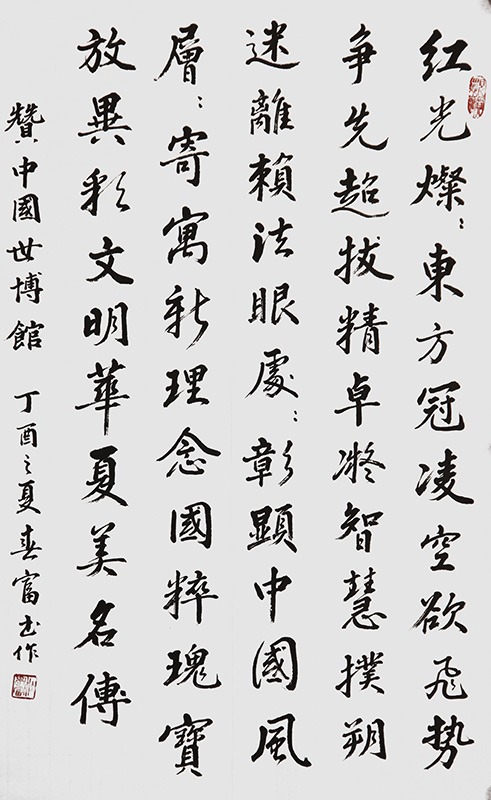 紅光燦〻東方冠凌空欲飛勢
争先超拔精卓凝智慧撲朔
迷離賴法眼處〻彰顯中國風
層〻寄寓新理念國粹瑰寶
放異彩文明華夏美名傳
贊中國世博館 丁酉之夏春富书作